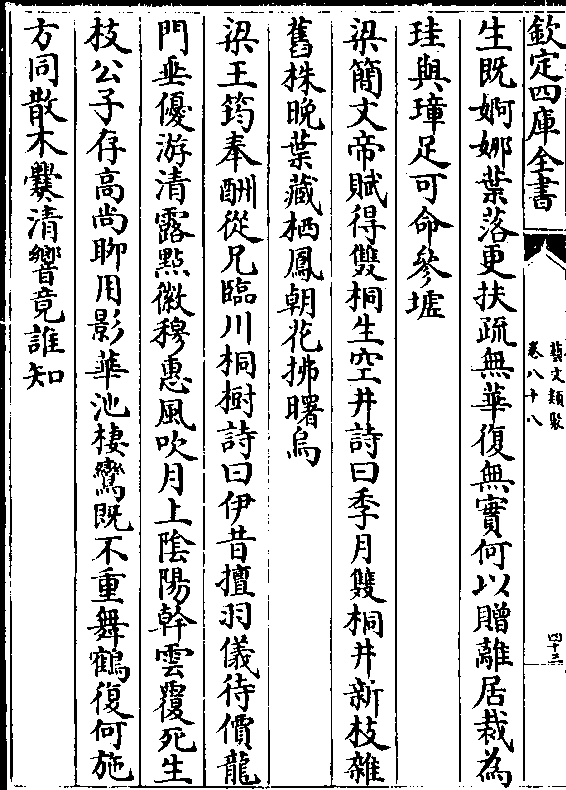 欽定四庫全書
藝文類聚
卷八十八
四十三
生既婀娜葉落更扶疏無華復無實何以贈離居裁為
珪與璋足可命參墟
梁簡文帝賦得雙桐生空井詩曰季月雙桐井新枝雜
舊株晚葉藏栖鳳朝花拂曙烏
梁王筠奉酬從兄臨川桐樹詩曰伊昔擅羽儀待價龍
門垂優游清露點徽穆惠風吹月上陰陽幹雲覆死生
枝公子存高尚聊用影華池棲鸞既不重舞鶴復何施
方同散木爨清響竟誰知